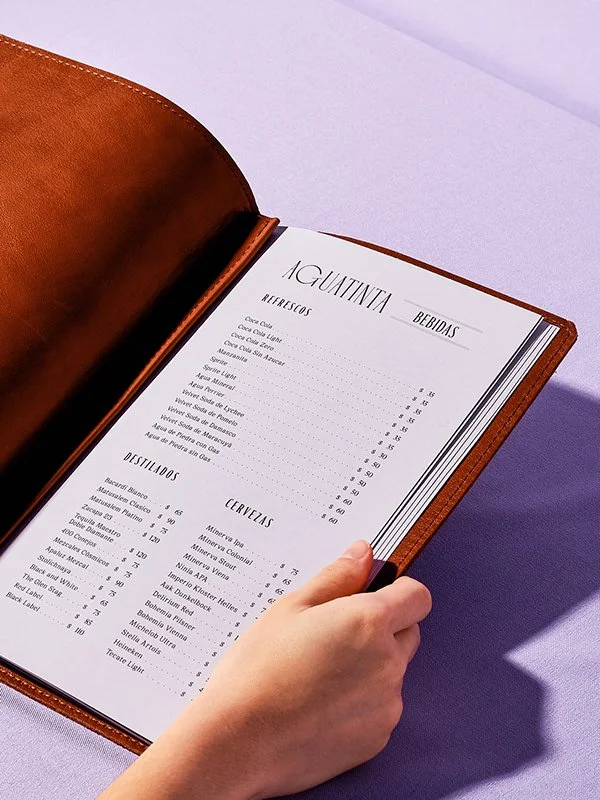 AGUATINTA
BEBIDAS
REFRESCOS
Coca Cola $ 35
Coca Cola Light $ 35
Coca Cola Zero $ 35
Coca Cola Sin Azucar $ 35
Manzanita $ 35
Sprite
Sprite Light
Agua Mineral
Agua Perrier
Velvet Soda de Lychee
Velvet Soda de Pomelo
Velvet Soda de Damasco
Velvet Soda de Maracuyá
Agua de Piedra con Gas $ 60
Agua de Piedra sin Gas $ 60
DESTILADOS
Bacardi Blanco $ 65
Matusalem Clasico $ 90
Matusalem Platino
Zacapa 23 $ 120
Tequila Maestro
Doble Diamante $ 120
400 Conejos
Mezcales Cósmicos
Apaluz Mezcal
Stolichnaya
Black and White $ 65
The Glen Stag $ 75
Red Label $ 85
Black Label $ 110
CERVEZAS
Minerva Ipa $ 75
Minerva Colonial $ 65
Minerva Stout
Minerva Viena
Ninia APA
Imperio Kloster Helles
Aak Dunkelbock
Delirium Red
Bohemia Pilsner
Bohemia Vienna
Michelob Ultra
Stella Artois
Heineken
Tecate Light